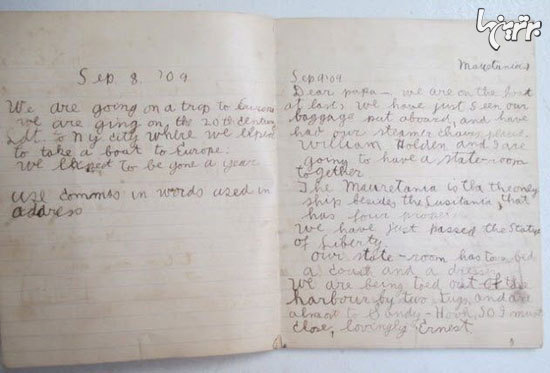 Sep. 8. '09
We are going on a trip to
we are ging on, the 20th century
Lft. to Ny city where we expect
to take a boat to Europe.
we expect to be gone a year
use commas in words used in
address
برترینها
Mauretania
Sep 9 '09
Dear papa — we are on the boat
at last, we have just seen our
baggage put aboard, and have
had our steamer chairs
William Holden and I are
going to have a state-room
together
The Mauretania is the only
ship besides the Lusitania, that
has four
We have just passed the Statue
of Liberty
Our state-room has two bed
a couch and a
We are being toed out of the
harbour by two tugs, and are
almost to Sandy-Hook, SO I must
close, lovingly Ernest